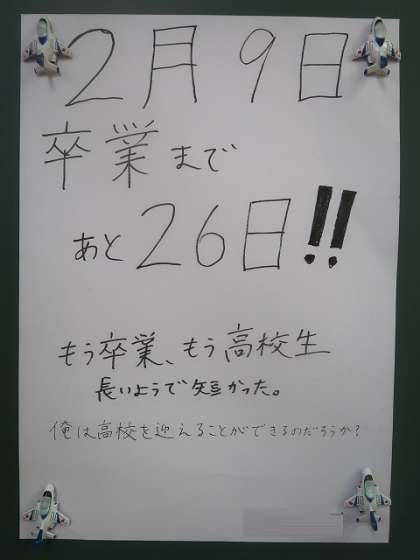 2月9日
卒業まで
あと26日!!
もう卒業、もう高校生
長いようで短かった。
俺は高校を迎えることができるのだろうか?